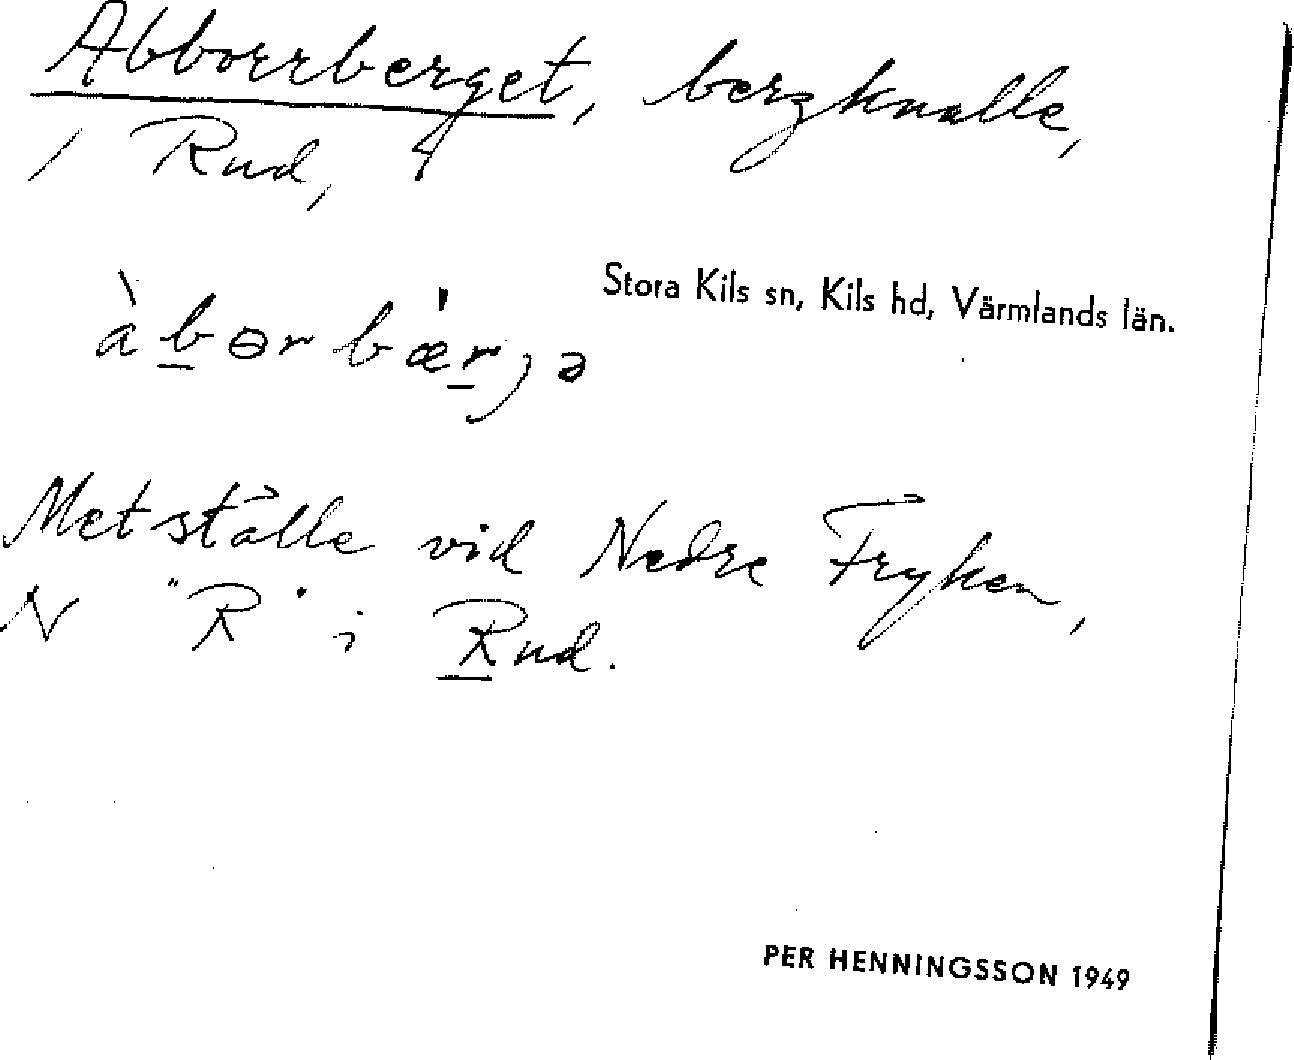 Abborrberget, bergknalle,
i Rud,
Stora Kils sn, Kils hd, Värmlands län.
àbərbæ̀rjə
Metställe vid Nedre Fryken,
N "R" i Rud.
PER HENNINGSSON 1949